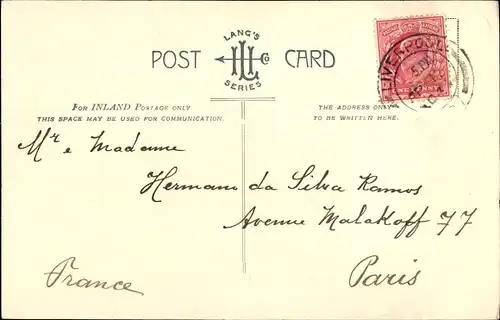 LANG'S
POST CARD
LIL Co
SERIES
LIVERPOOL
ONE PENNY
FOR INLAND POSTAGE ONLY
THIS SPACE MAY BE USED FOR COMMUNICATION.
THE ADDRESS ONLY
TO BE WRITTEN HERE.
Mr e Madame
Hermano da Silva Ramos
Avenue Malakoff 77
France
Paris